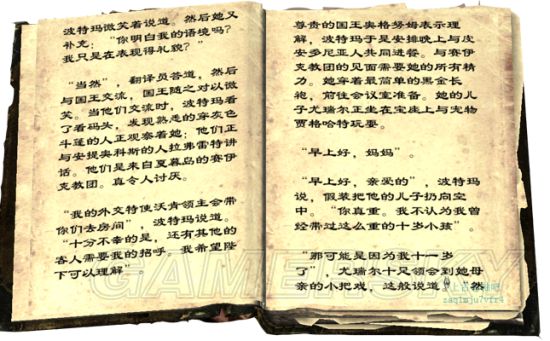 波特玛微笑着说道。然后她又
补充：“你明白我的语境吗？
我只是在表现得礼貌？”
“当然”，翻译员答道，然后
与国王交流，国王随之对以微
笑。当他们交流时，波特玛看
了看码头，发现熟悉的穿灰色
斗篷的人正观察着她；他们正
与安提奥科斯的人拉弗雷特讲
话。他们是来自夏暮岛的赛伊
克教团。真令人讨厌。
“我的外交特使沃肯领主会带
你们去房间”，波特玛说道。
“十分不幸的是，还有其他的
客人需要我的招呼。我希望陛
下可以理解”。
尊贵的国王奥格努姆表示理
解，波特玛于是安排晚上与皮
安多尼亚人共同进餐。与赛伊
克教团的见面需要她的所有精
力。她穿着最简单的黑金长
袍，前往会议室准备。她的儿
子尤瑞尔正坐在宝座上与宠物
贾格哈特玩耍。
“早上好，妈妈”。
“早上好，亲爱的”，波特玛
说，假装把他的儿子扔向空
中。“你真重。我不认为我曾
经带过这么重的十岁小孩”。
“那可能是因为我十一岁
了”，尤瑞尔十足领会到她母
亲的小把戏，这般说道。“然
GAMERSKY
zaqlmju7vfr4